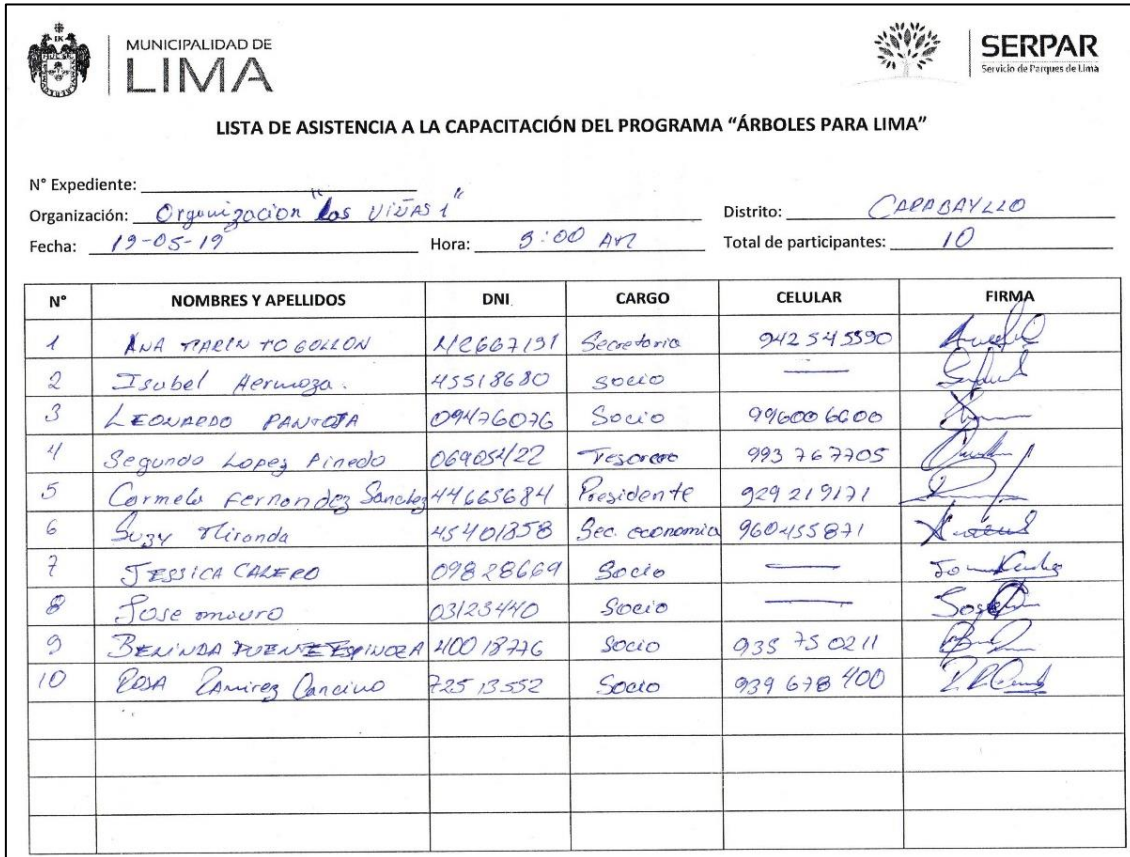 MUNICIPALIDAD DE
LIMA
SERPAR
Servicio de Parques de Lima
LISTA DE ASISTENCIA A LA CAPACITACIÓN DEL PROGRAMA “ÁRBOLES PARA LIMA”
N° Expediente:
Organización: Organizacion "Las VIÑAS 1" Distrito: CARABAYLLO
Fecha: 19-05-19 Hora: 9:00 AM Total de participantes: 10
N° NOMBRES Y APELLIDOS DNI CARGO CELULAR FIRMA
1 ANA MARIN TOGOLLON Secretaria 942 545590
2 Isabel Hermoza. 45518680 socio
3 LEONARDO PANTOJA 09476076 Socio 996006600
4 Segundo Lopez Pinedo 06905422 Tesorero 993 767705
5 Carmela Fernandez Sanchez 44665684 Presidente 929219171
6 Suzy Miranda 45401358 Sec. economia 960455871
7 JESSICA CALERO 09828669 Socio
8 Jose mauro 03123440 Socio
9 BENINDA PUENTE ESPINOZA 40018776 Socio 935 75 0211
10 ROSA RAMIREZ Cancino 72513552 Socio 939 678 400